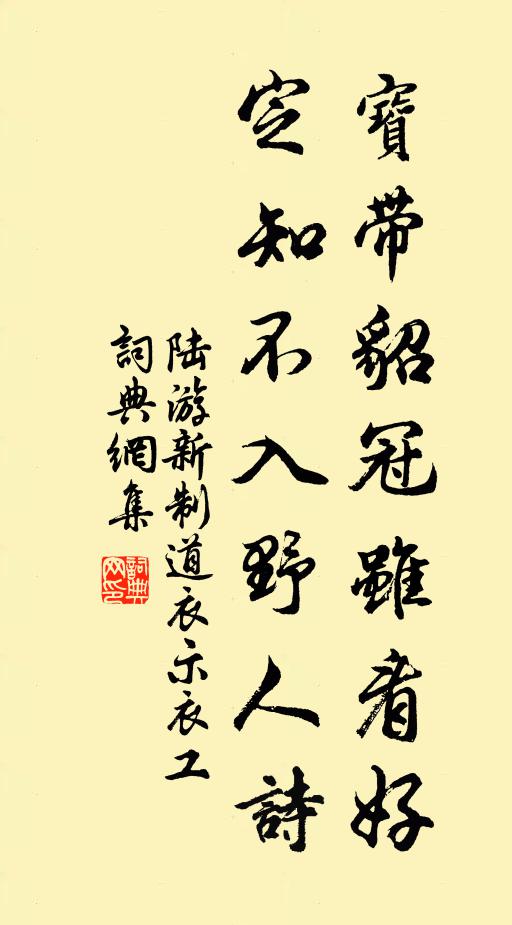 寶帶貂冠雖看好
定知不入野人詩
陆游新制道衣示衣工
詞典網集
詞典網印